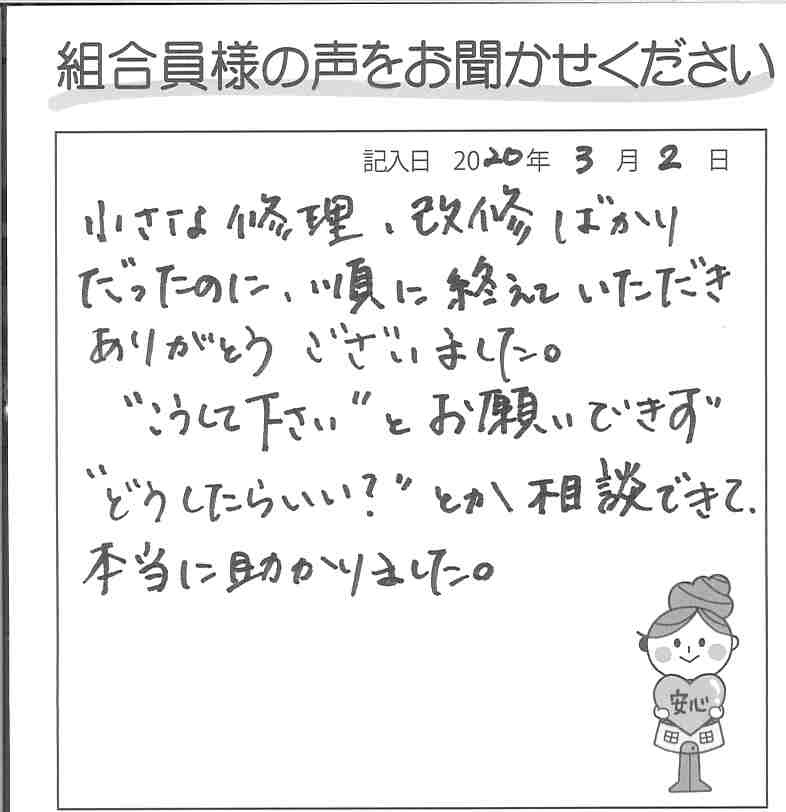 組合員様の声をお聞かせください
記入日 2020年 3月 2日
小さな修理、改修ばかり
だったのに、順に終えていただき
ありがとうございました。
"こうして下さい"とお願いできず
"どうしたらいい?"とか相談できて、
本当に助かりました。
安心